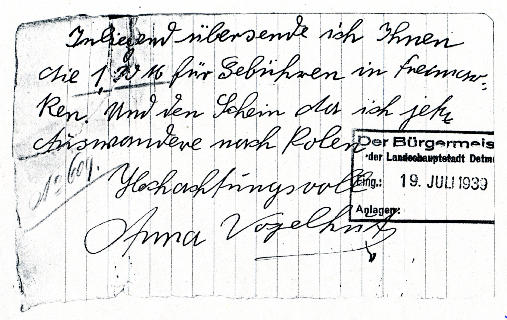 Inliegend übersende ich Ihnen
die 1,20 M für Gebühren in Freimar-
ken. Und den Schein da ich jetz
Auswandere nach Polen
Hochachtungsvoll
Anna Vogelhut
No. 609.
Der Bürgermeis
der Landeshauptstadt Detmo
Eing.: 19. JULI 1939
Anlagen: